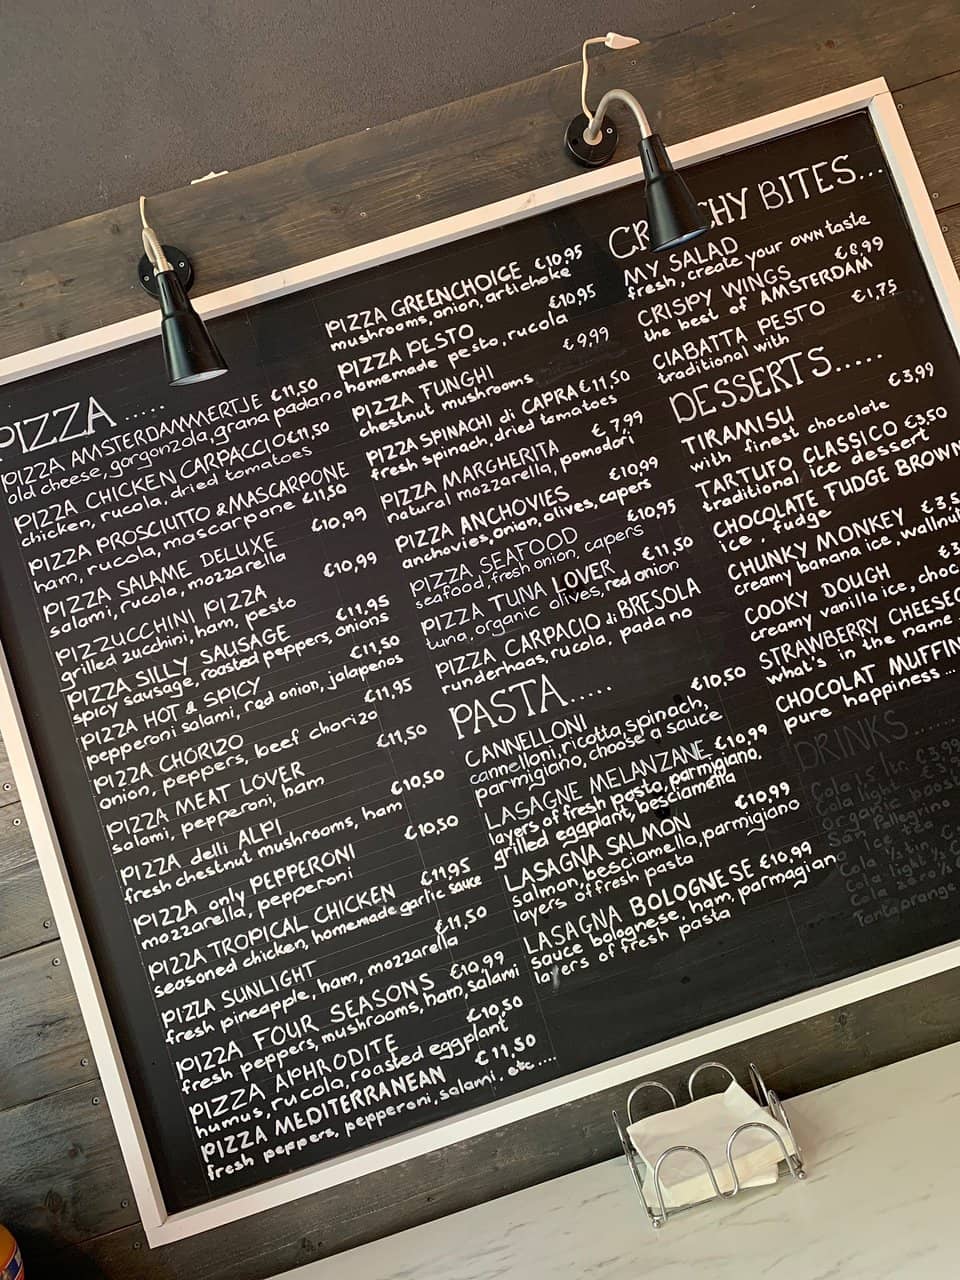 PIZZA .....
PIZZA AMSTERDAMMERTJE €11,50
old cheese, gorgonzola, grana padano
PIZZA CHICKEN CARPACCIO €11,50
chicken, rucola, dried tomatoes
PIZZA PROSCIUTTO & MASCARPONE
ham, rucola, mascarpone €11,50
PIZZA SALAME DELUXE €10,99
salami, rucola, mozzarella
PIZZUCCHINI PIZZA €10,99
grilled zucchini, ham, pesto
PIZZA SILLY SAUSAGE €11,95
spicy sausage, roasted peppers, onions
PIZZA HOT & SPICY €11,50
pepperoni salami, red onion, jalapenos
PIZZA CHORIZO €11,95
onion, peppers, beef chorizo
PIZZA MEAT LOVER €11,50
salami, pepperoni, ham
PIZZA delli ALPI €10,50
fresh chestnut mushrooms, ham
PIZZA only PEPPERONI €10,50
mozzarella, pepperoni
PIZZA TROPICAL CHICKEN €11,95
seasoned chicken, homemade garlic sauce
PIZZA SUNLIGHT €11,50
fresh pineapple, ham, mozzarella
PIZZA FOUR SEASONS €10,99
fresh peppers, mushrooms, ham, salami
PIZZA APHRODITE €10,50
humus, rucola, roasted eggplant
PIZZA MEDITERRANEAN €11,50
fresh peppers, pepperoni, salami, etc....
PIZZA GREENCHOICE €10,95
mushrooms, onion, artichoke
PIZZA PESTO €10,95
homemade pesto, rucola
PIZZA TUNGHI €9,99
chestnut mushrooms
PIZZA SPINACHI di CAPRA €11,50
fresh spinach, dried tomatoes
PIZZA MARGHERITA €7,99
natural mozzarella, pomodori
PIZZA ANCHOVIES €10,99
anchovies, onion, olives, capers
PIZZA SEAFOOD €10,95
seafood, fresh onion, capers
PIZZA TUNA LOVER €11,50
tuna, organic olives, red onion
PIZZA CARPACIO di BRESOLA
runderhaas, rucola, padano
PASTA.....
CANNELLONI €10,50
cannelloni, ricotta, spinach,
parmigiano, choose a sauce
LASAGNE MELANZANE €10,99
layers of fresh pasta, parmigiano,
grilled eggplant, besciamella
LASAGNA SALMON €10,99
salmon, besciamella, parmigiano
layers of fresh pasta
LASAGNA BOLOGNESE €10,99
sauce bolognese, ham, parmagian
layers of fresh pasta
CR CHY BITES...
MY SALAD
fresh, create your own taste
CRISPY WINGS €8,99
the best of AMSTERDAM
CIABATTA PESTO €1,75
traditional with
DESSERTS.....
TIRAMISU €3,99
with finest chocolate
TARTUFO CLASSICO €3,50
traditional ice dessert
CHOCOLATE FUDGE BROWN
ice, fudge
CHUNKY MONKEY €3,5
creamy banana ice, wallnut
COOKY DOUGH €3
creamy vanilla ice, choc
STRAWBERRY CHEESEC
what's in the name
CHOCOLAT MUFFIN
pure happiness...
DRINKS......
Cola
Cola light
Organic
San Pellegrino
Ice tea
Cola
Cola light
Cola zero
Fanta, orange